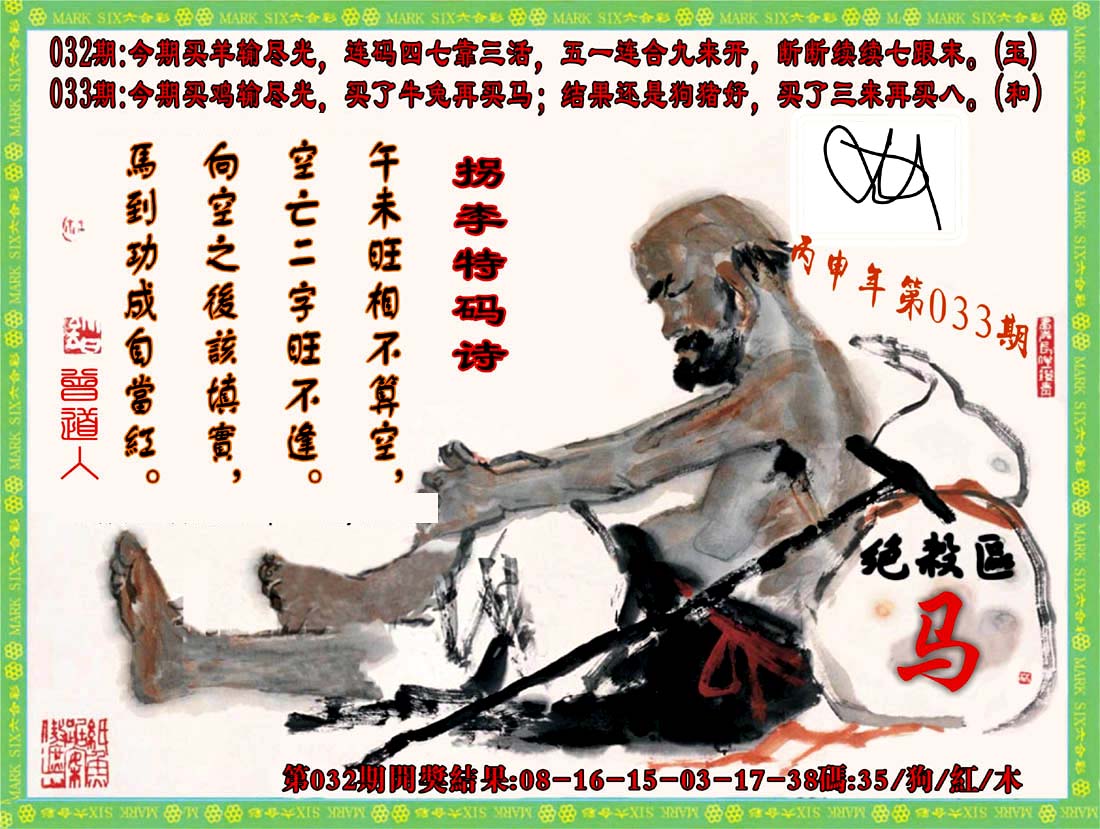 032期:今期买羊输尽光，连码四七靠三活，五一连合九来开，断断续续七跟末。(玉)
033期:今期买鸡输尽光，买了牛兔再买马；结果还是狗猪好，买了三来再买八。(和)
拐李特码诗
午未旺相不算空，
空亡二字旺不逢。
向空之後該填實，
馬到功成自當紅。
曾道人
丙申年第033期
绝殺區
马
第032期開獎結果:08-16-15-03-17-38碼:35/狗/紅/木
MARK SIX六合彩